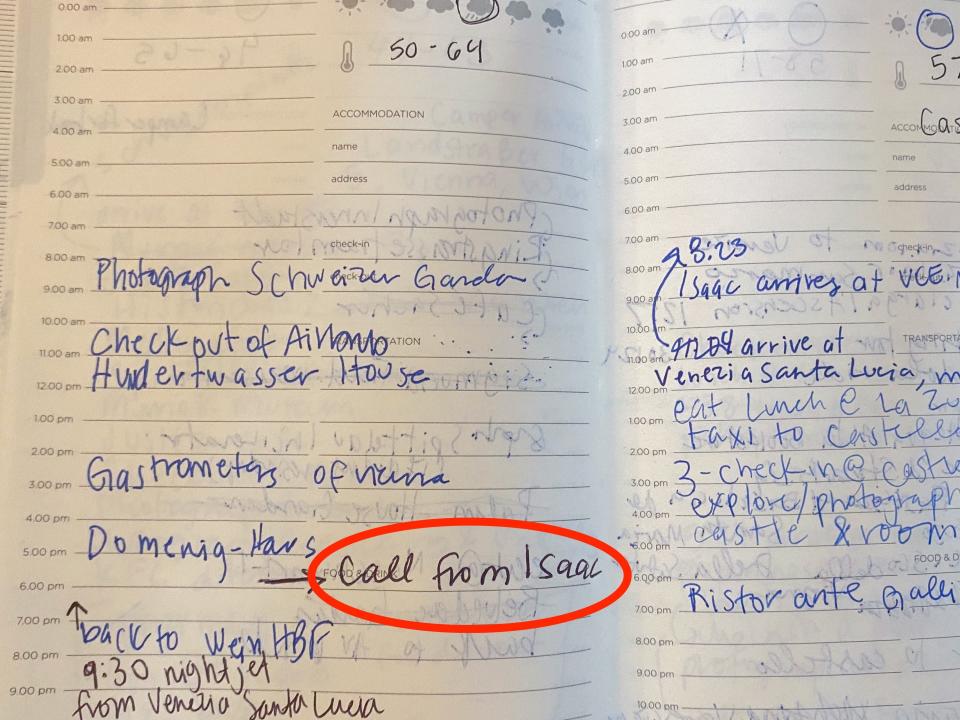 0.00 am
1.00 am
50 - 64
2.00 am
3.00 am
ACCOMMODATION
4.00 am
name
5.00 am
address
6.00 am
7.00 am
check-in
8.00 am
Photograph Schweizer Garden
9.00 am
10.00 am
Check out of Airbnb
11.00 am
Hundertwasser House
12.00 pm
1.00 pm
2.00 pm
Gastrometers of Vienna
3.00 pm
4.00 pm
Domenig-Haus
5.00 pm
FOOD & DRINK
Call from Isaac
6.00 pm
7.00 pm
back to Wein HBF
8.00 pm
9:30 nightjet
9.00 pm
from Venezia Santa Lucia
0.00 am
1.00 am
57
2.00 am
3.00 am
ACCOMMODAT
Cas
4.00 am
name
5.00 am
address
6.00 am
7.00 am
check-in
8:23
8.00 am
Isaac arrives at VCE
9.00 am
10.00 am
TRANSPORTA
arrive at
11.00 am
Venezia Santa Lucia, m
12.00 pm
eat lunch @ La Zu
1.00 pm
taxi to castello
2.00 pm
3-check in @ caste
3.00 pm
explore/photograph
4.00 pm
castle & room
5.00 pm
FOOD & D
6.00 pm
Ristorante Galli
7.00 pm
8.00 pm
9.00 pm
10.00 pm